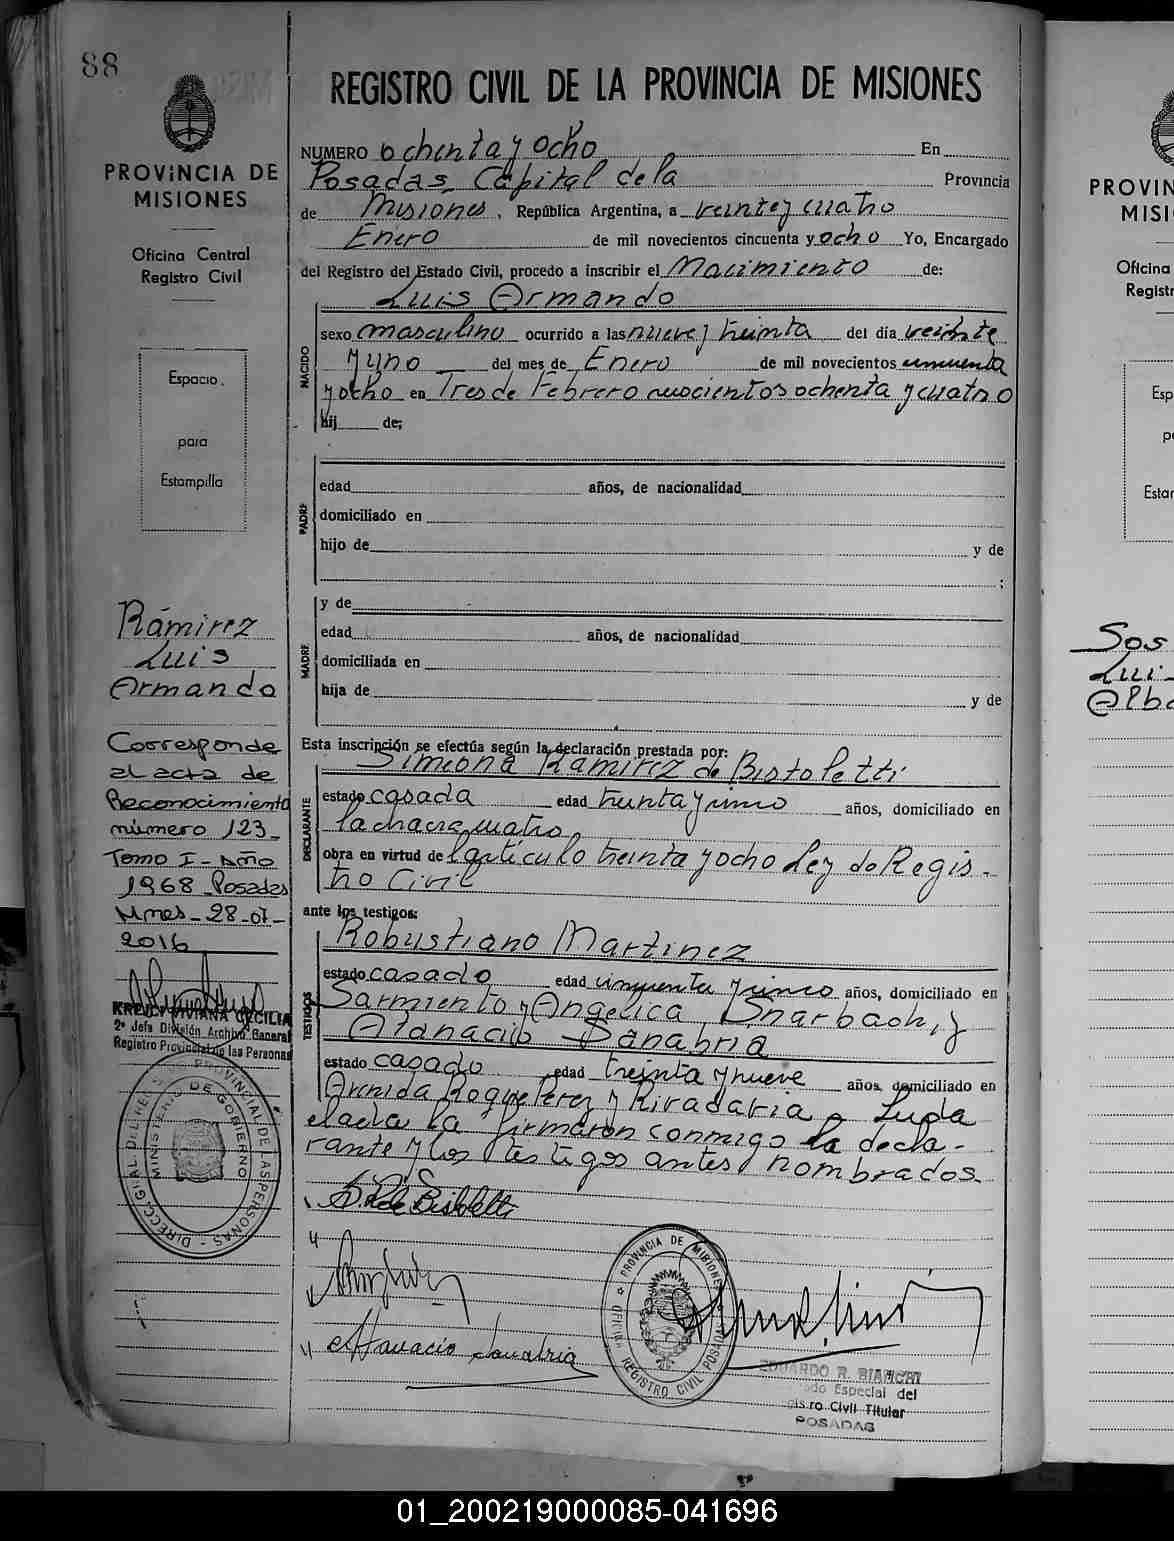 88
REGISTRO CIVIL DE LA PROVINCIA DE MISIONES
PROVINCIA DE
MISIONES
Oficina Central
Registro Civil
Espacio
para
Estampilla
Ramirez
Luis
Armando
Corresponde
al acta de
Reconocimiento
número 123_
Tomo I - Año
1968_Posadas
Mnes_28_07_
2016
KREJCI VIVIANA CECILIA
2ª Jefa División Archivo General
Registro Provincial de las Personas
DIRECC. GRAL DEL REG. PROVINCIAL DE LAS PERSONAS
MINISTERIO DE GOBIERNO
NUMERO ochenta y ocho En
Posadas, Capital de la Provincia
de Misiones, República Argentina, a veinte y cuatro
Enero de mil novecientos cincuenta y ocho Yo, Encargado
del Registro del Estado Civil, procedo a inscribir el Nacimiento de:
Luis Armando
NACIDO
sexo masculino ocurrido a las nueve y treinta del día veinte
y uno del mes de Enero de mil novecientos cincuenta
y ocho en Tres de Febrero ochenta y cuatro
hij de;
PADRE
edad años, de nacionalidad
domiciliado en
hijo de y de
;
MADRE
y de
edad años, de nacionalidad
domiciliada en
hija de y de
Esta inscripción se efectúa según la declaración prestada por:
DECLARANTE
Simeona Ramirez de Bistoletti
estado casada edad treinta y cinco años, domiciliado en
la chacra cuatro
obra en virtud del artículo treinta y ocho Ley de Regis-
tro Civil
ante los testigos:
TESTIGOS
Robustiano Martinez
estado casado edad cincuenta y cinco años, domiciliado en
Sarmiento y Angelica y
Atanacio Sanabria
estado casado edad treinta y nueve años, domiciliado en
Roque Perez y Rivadavia Leida
el acta la firmaron conmigo la decla-
rante y los testigos antes nombrados.
S. R. de Bistoletti
Atanacio Sanabria
PROVINCIA DE MISIONES
OFICINA REGISTRO CIVIL POSADAS
EDUARDO R. BIANCHI
Especial del
Registro Civil Titular
POSADAS
PROVIN
MISI
Oficina
Registr
Esp
pa
Estar
Sos
Lui
01_200219000085-041696